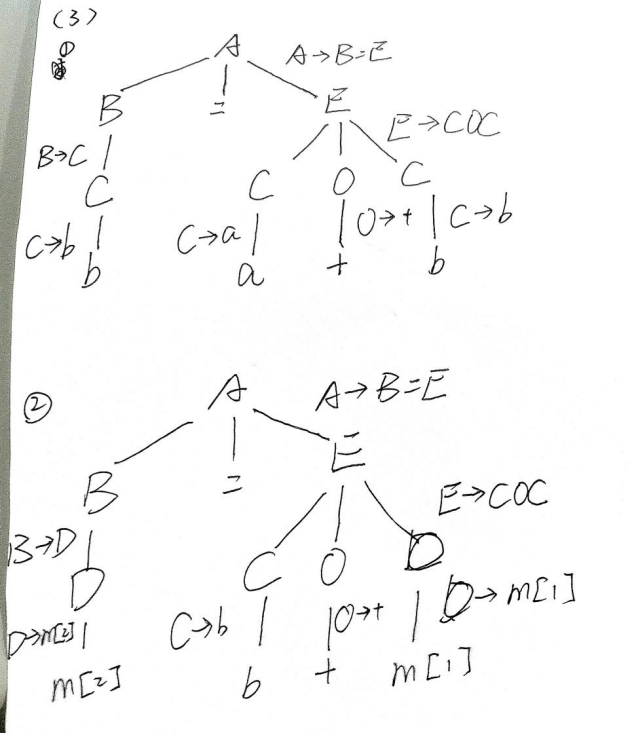 (3)
①
A A→B=E
B = E
E→COC
B→C
C C O C
C→b C→a O→+ C→b
b a + b
②
A A→B=E
B = E
E→COC
B→D
D C O D
D→m[2] C→b O→+ D→m[1]
m[2] b + m[1]